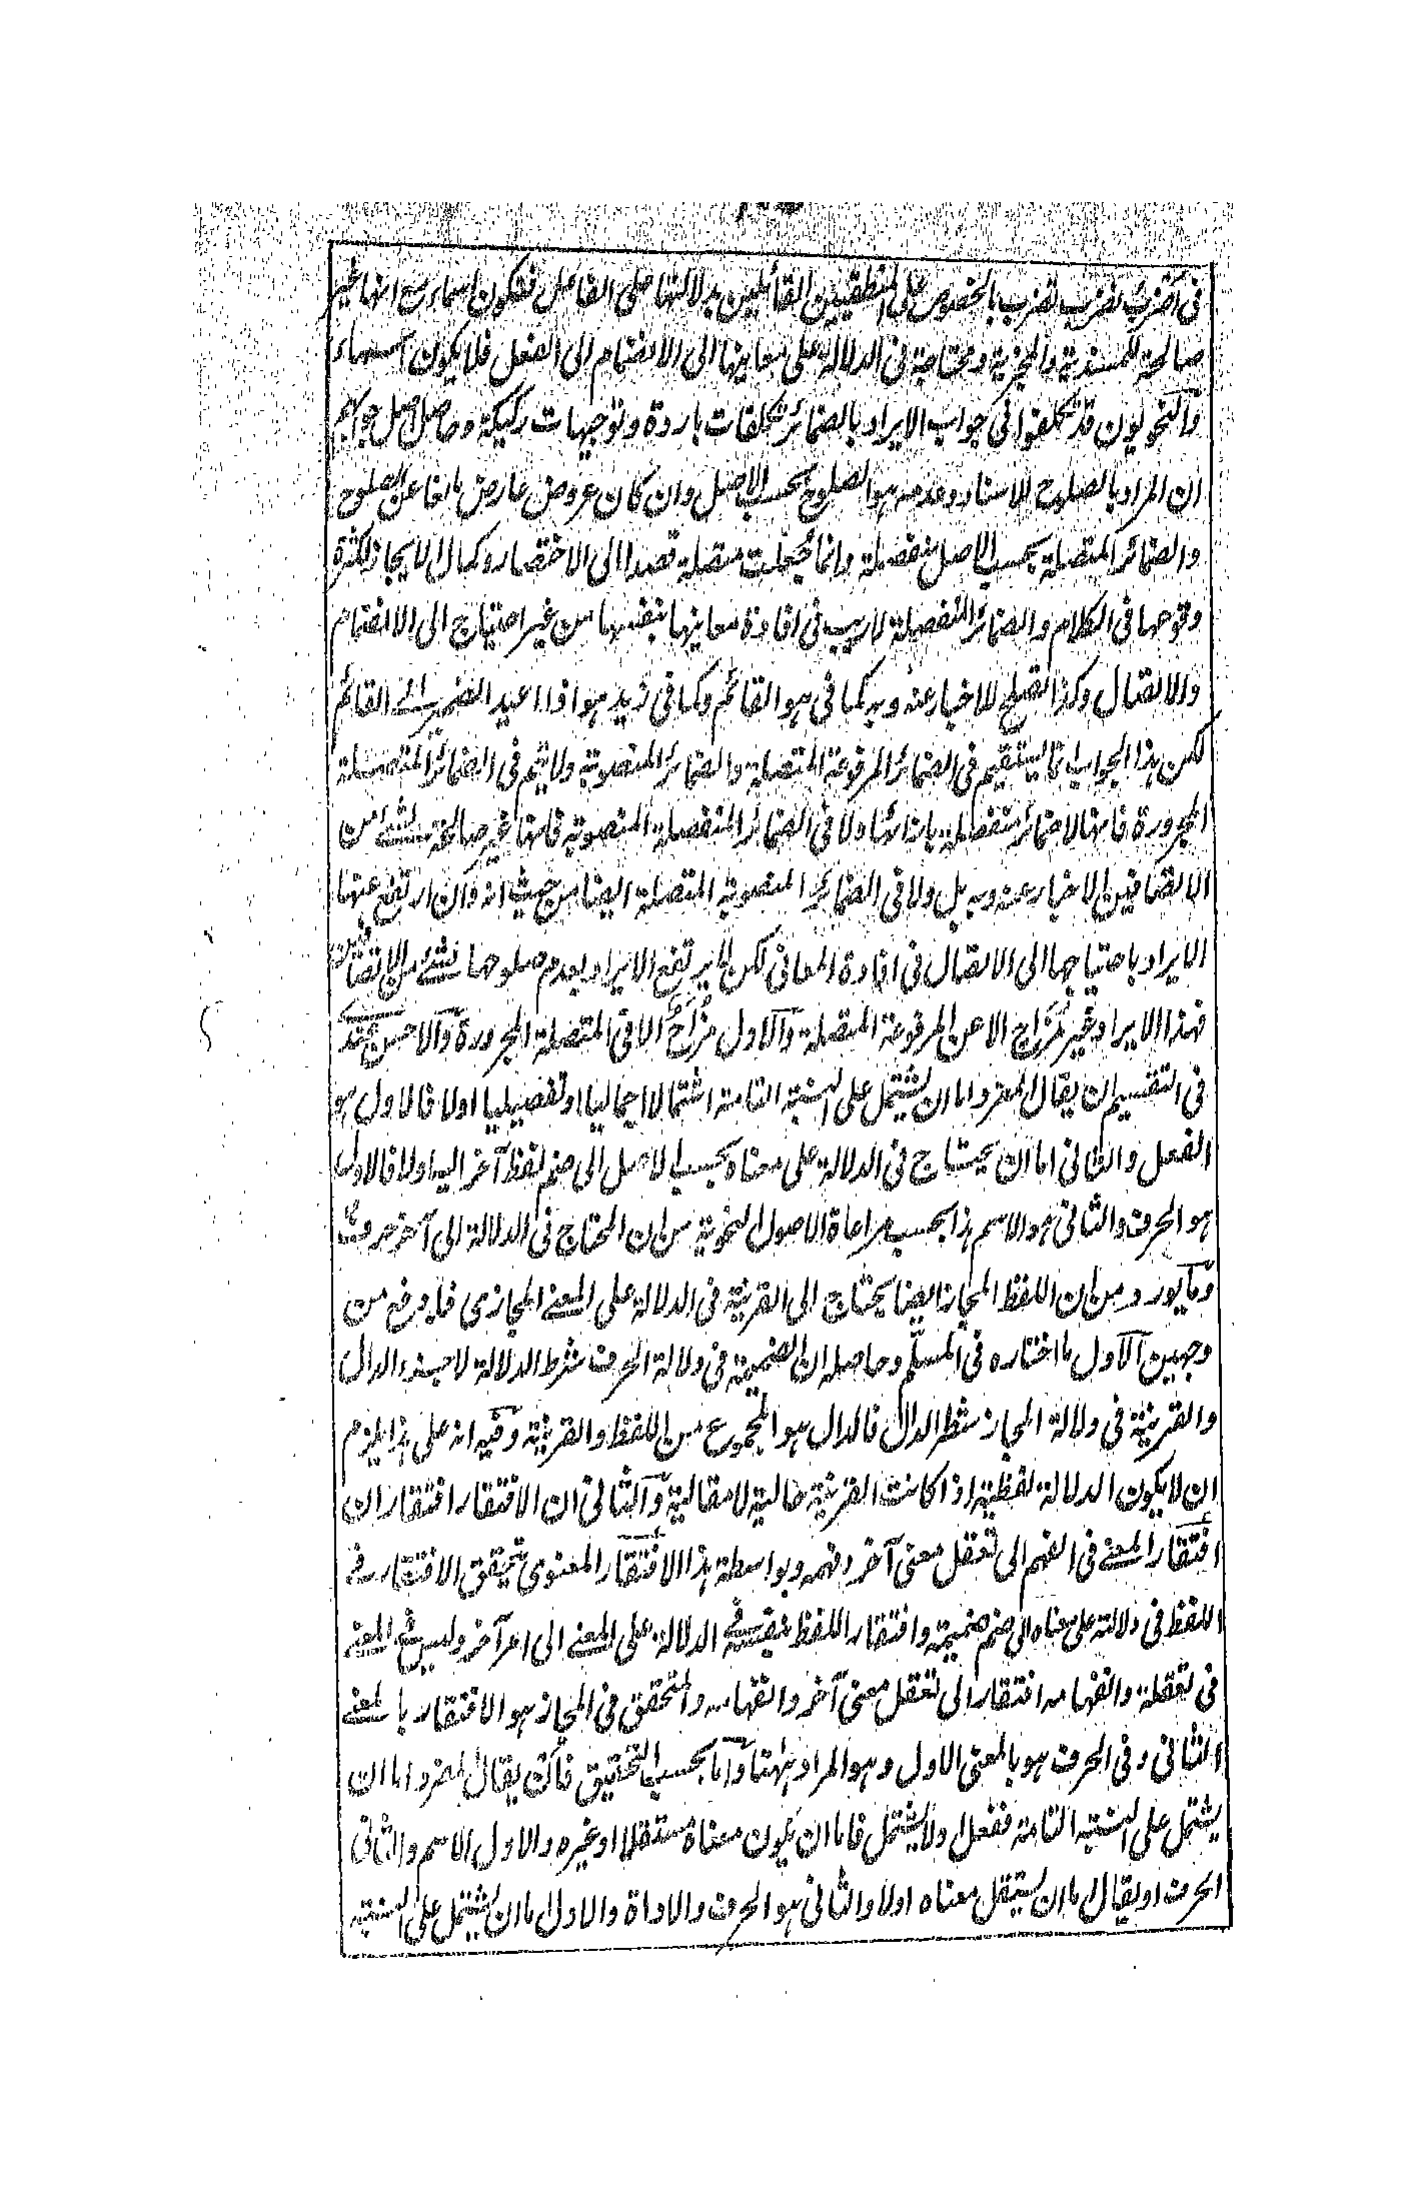 في اضرب نضرب تضرب بالخصوص على المنطقيين القائلين بدلالتها على الفاعل فتكون اسماء مع انها غير
صالحة للمسندية والمخبرية ومحتاجة في الدلالة على معانيها الى الانضمام الى الفعل فلا يكون اسماء
والنحويون قد تكلفوا في جواب الايراد بالضمائر تكلفات باردة وتوجيهات ركيكة وحاصل اصل جوابهم
ان المراد بالصلوح للاسناد وعدمه هو الصلوح بحسب الاصل وان كان عروض عارض مانعا عن الصلوح
والضمائر المتصلة بحسب الاصل منفصلة وانما جعلت متصلة قصدا الى الاختصار وكمال الايجاز لكثرة
وقوعها في الكلام والضمائر المنفصلة لا ريب في افادة معانيها بنفسها من غير احتياج الى الانضمام
والاتصال وكذا تصلح للاخبار عنه وبه كما في هو القائم وكما في زيد هو اذا اعيد الضمير الى القائم
لكن هذا الجواب انما يستقيم في الضمائر المرفوعة المتصلة والضمائر المنصوبة ولا يتم في الضمائر المتصلة
المجرورة فانها لا ضمائر منفصلة بازائها ولا في الضمائر المنفصلة المنصوبة فانها غير صالحة لشئ من
الاتصافين الاخبار عنه وبه بل ولا في الضمائر المنصوبة المتصلة ايضا من حيث انه وان ارتفع عنها
الايراد باحتياجها الى الاتصال في افادة المعاني لكن لا يرتفع الايراد بعدم صلوحها لشئ من الاتصافين
فهذا الايراد غير مزاح الا عن المرفوعة المتصلة والاول مزاح الا في المتصلة المجرورة والاحسن عندك
في التقسيم ان يقال المفرد اما ان يشتمل على النسبة التامة اشتمالا اجماليا او تفصيليا اولا فالاول هو
الفعل والثاني اما ان يحتاج في الدلالة على معناه بحسب الاصل الى ضم لفظ آخر اليه اولا فالاول
هو الحرف والثاني هو الاسم هذا بحسب مراعاة الاصول النحوية من ان المحتاج في الدلالة الى آخر حرف
وما يورد من ان اللفظ المجاز ايضا يحتاج الى القرينة في الدلالة على المعنى المجازي فمدفوع من
وجهين الاول ما اختاره في المسلم وحاصله ان الضميمة في دلالة الحرف شرط الدلالة لا جزء الدال
والقرينة في دلالة المجاز شطر الدال فالدال هو المجموع من اللفظ والقرينة وفيه انه على هذا يلزم
ان لا يكون الدلالة لفظية اذا كانت القرينة حالية لا مقالية والثاني ان الافتقار افتقاران
افتقار المعنى في الفهم الى تعقل معنى آخر وفهمه وبواسطة هذا الافتقار المعنوي يتحقق الافتقار في
اللفظ في دلالته على معناه الى ضم ضميمة وافتقار اللفظ بنفسه في الدلالة على المعنى الى امر آخر وليس في المعنى
في تعقله وانفهامه افتقار الى تعقل معنى آخر وانفهامه والمتحقق في المجاز هو الافتقار بالمعنى
الثاني وفي الحرف هو بالمعنى الاول وهو المراد ههنا واما بحسب التحقيق فان يقال المفرد اما ان
يشتمل على النسبة التامة ففعل ولا يشتمل فاما ان يكون معناه مستقلا او غيره والاول الاسم والثاني
الحرف او يقال اما ان يستقل معناه اولا والثاني هو الحرف والاداة والاول اما ان يشتمل على النسبة